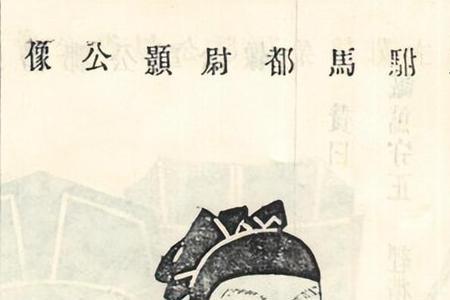 駙馬都尉顥公像